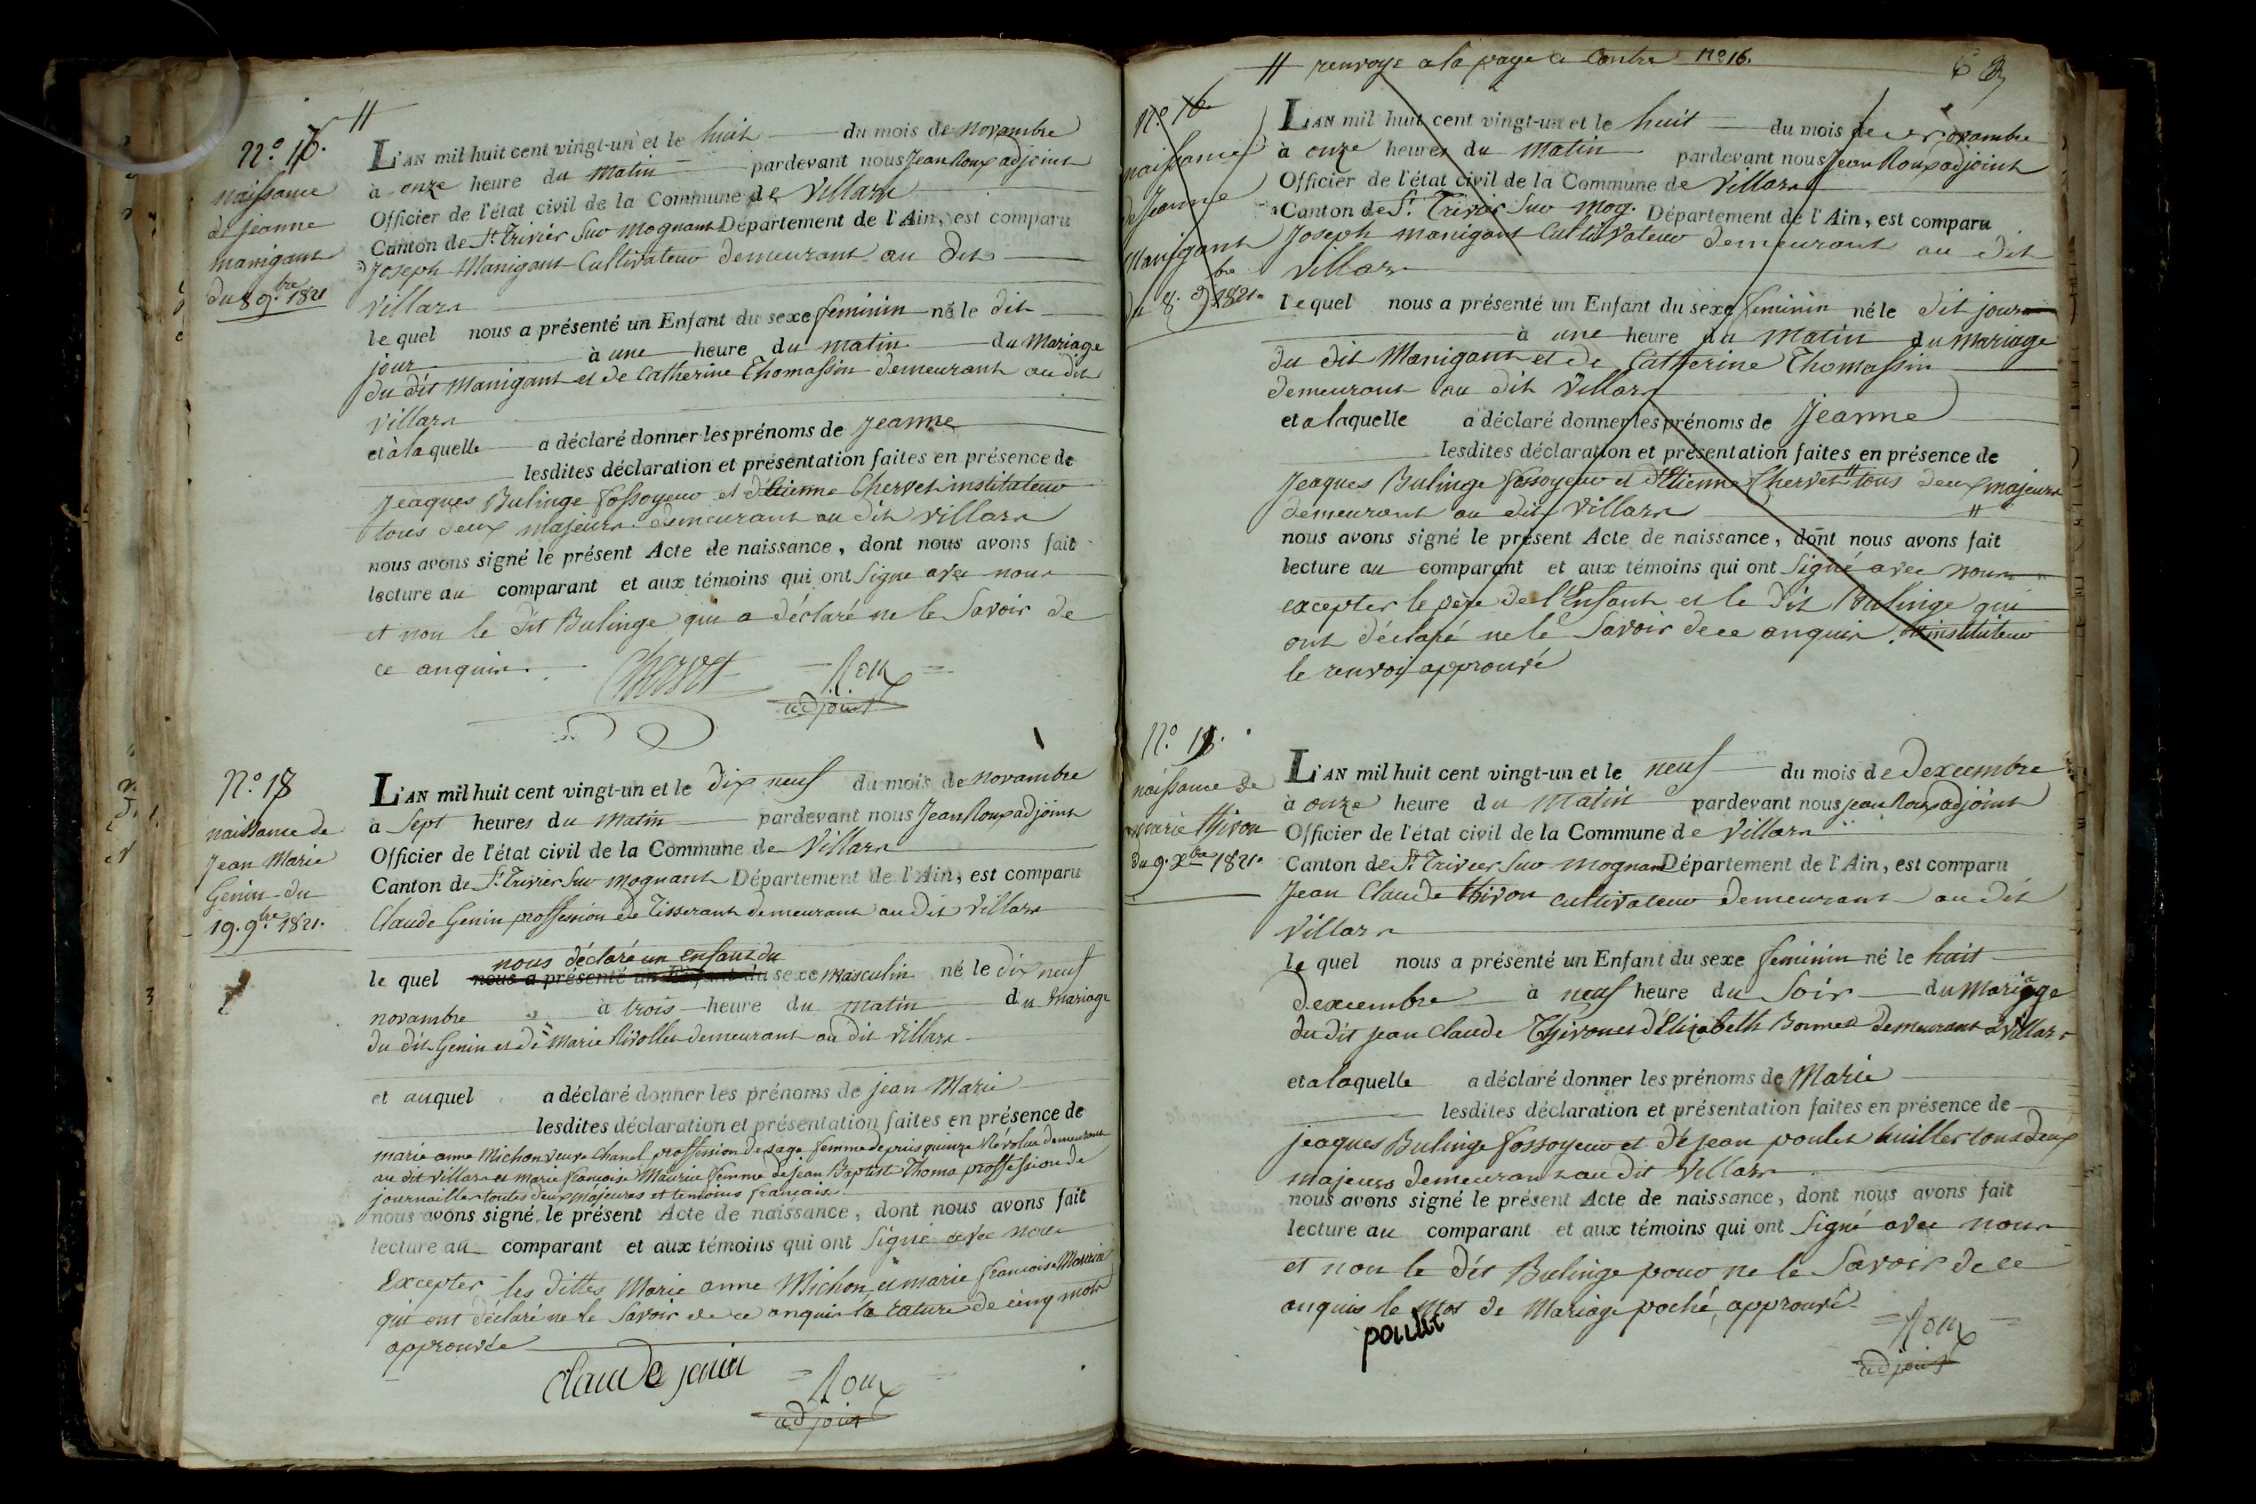 //
N.º 16.
naissance
de jeanne
manigant
du 8 9.bre 1821
L'AN mil huit cent vingt-un et le huit du mois de novambre
à onze heure du matin pardevant nous Jean Roux adjoint
Officier de l'état civil de la Commune de Villars
Canton de St. Trivier Suv mognant Département de l'Ain, est comparu
Joseph Manigant Cultivateuv demeurant au dit
Villars
le quel nous a présenté un Enfant du sexe feminin né le dit
jour à une heure du matin du Mariage
du dit Manigant et de Catherine Thomassin demeurant au dit
Villars
et à la quelle a déclaré donner les prénoms de Jeanne
lesdites déclaration et présentation faites en présence de
Jeaques Bulinge fossoyeuv et d'étienne Chervet instituteuv
tous deux majeurs demeurant au dit villars
nous avons signé le présent Acte de naissance, dont nous avons fait
lecture au comparant et aux témoins qui ont Signe avec nous
et non le dit Bulinge qui a déclaré ne le Savoir de
ce anquis.
Chervet
Roux
adjoint
N.º 17
naissance de
Jean Marie
Genin du
19. 9bre 1821.
L'AN mil huit cent vingt-un et le dix neuf du mois de novambre
a Sept heures du matin pardevant nous Jean Roux adjoint
Officier de l'état civil de la Commune de Villars
Canton de St. Trivier Suv mognant Département de l'Ain, est comparu
Claude Genin proffession de Tisserant demeurant au dit villars
nous déclaré un enfant du
le quel nous a présenté un Enfant du sexe masculin né le dix neuf
novambre à trois heure du matin du mariage
du dit Genin et de marie Rivollet demeurant au dit villars
et auquel a déclaré donner les prénoms de jean Marie
lesdites déclaration et présentation faites en présence de
marie anne Michon veuve Chanel proffession de sage femme depuis quinze Révolue demeurant
au dit villars et marie francoise Maurin femme de Jean Baptist Thoma proffession de
journaillier toutes deux majeures et temoins francaise
nous avons signé le présent Acte de naissance, dont nous avons fait
lecture au comparant et aux témoins qui ont Signé avec nous
Excepter les dittes Marie anne Michon et marie francoise Maurin
qui ont déclaré ne le Savoir de ce anquis la rature de cinq mots
approuvée
claude jenin
Roux
adjoint
// renvoye a la page ci Contre nº 16.
N.º 16
naissance
de Jeanne
Manigant
du 8. 9bre 1821.
L'AN mil huit cent vingt-un et le huit du mois de novambre
à onze heures du matin pardevant nous Jean Roux adjoint
Officier de l'état civil de la Commune de Villars
Canton de St. Trivier Suv mog. Département de l'Ain, est comparu
Joseph manigant Cultivateuv demeurant au dit
Villars
lequel nous a présenté un Enfant du sexe feminin né le dit jour
à une heure du matin du mariage
du dit Manigant et de Catherine Thomassin
demeurant au dit villars
et a laquelle a déclaré donner les prénoms de Jeanne
lesdites déclaration et présentation faites en présence de
Jeaques Bulinge fossoyeuv et d'Etienne Chervet // tous deux majeurs
demeurant au dit villars //
nous avons signé le présent Acte de naissance, dont nous avons fait
lecture au comparant et aux témoins qui ont Signé avec nous
excepter le père de l'Enfant et le dit Bulinge qui
ont déclaré ne le Savoir de ce anquis. // instituteuv
le renvoi approuvé
N.º 18.
naissance de
marie thivon
du 9. Xbre 1821.
L'AN mil huit cent vingt-un et le neuf du mois de dexembre
à onze heure du matin pardevant nous jean Roux adjoint
Officier de l'état civil de la Commune de Villars
Canton de St. Trivier Suv mognant Département de l'Ain, est comparu
Jean Claude thivon cultivateuv demeurant au dit
Villars
le quel nous a présenté un Enfant du sexe feminin né le huit
dexcembre à neuf heure du Soir du mariage
du dit jean Claude Thivon et d'Elizabeth Bonnet demeurant à villars
et a laquelle a déclaré donner les prénoms de Marie
lesdites déclaration et présentation faites en présence de
jeaques Bulinge fossoyeuv et de jean poulet huillier tous deux
majeurs demeurant au dit villars
nous avons signé le présent Acte de naissance, dont nous avons fait
lecture au comparant et aux témoins qui ont Signé avec nous
et non le dit Bulinge pouv ne le Savoir de ce
anquis le mot de Mariage poché, approuvé
poullet
Roux
adjoint